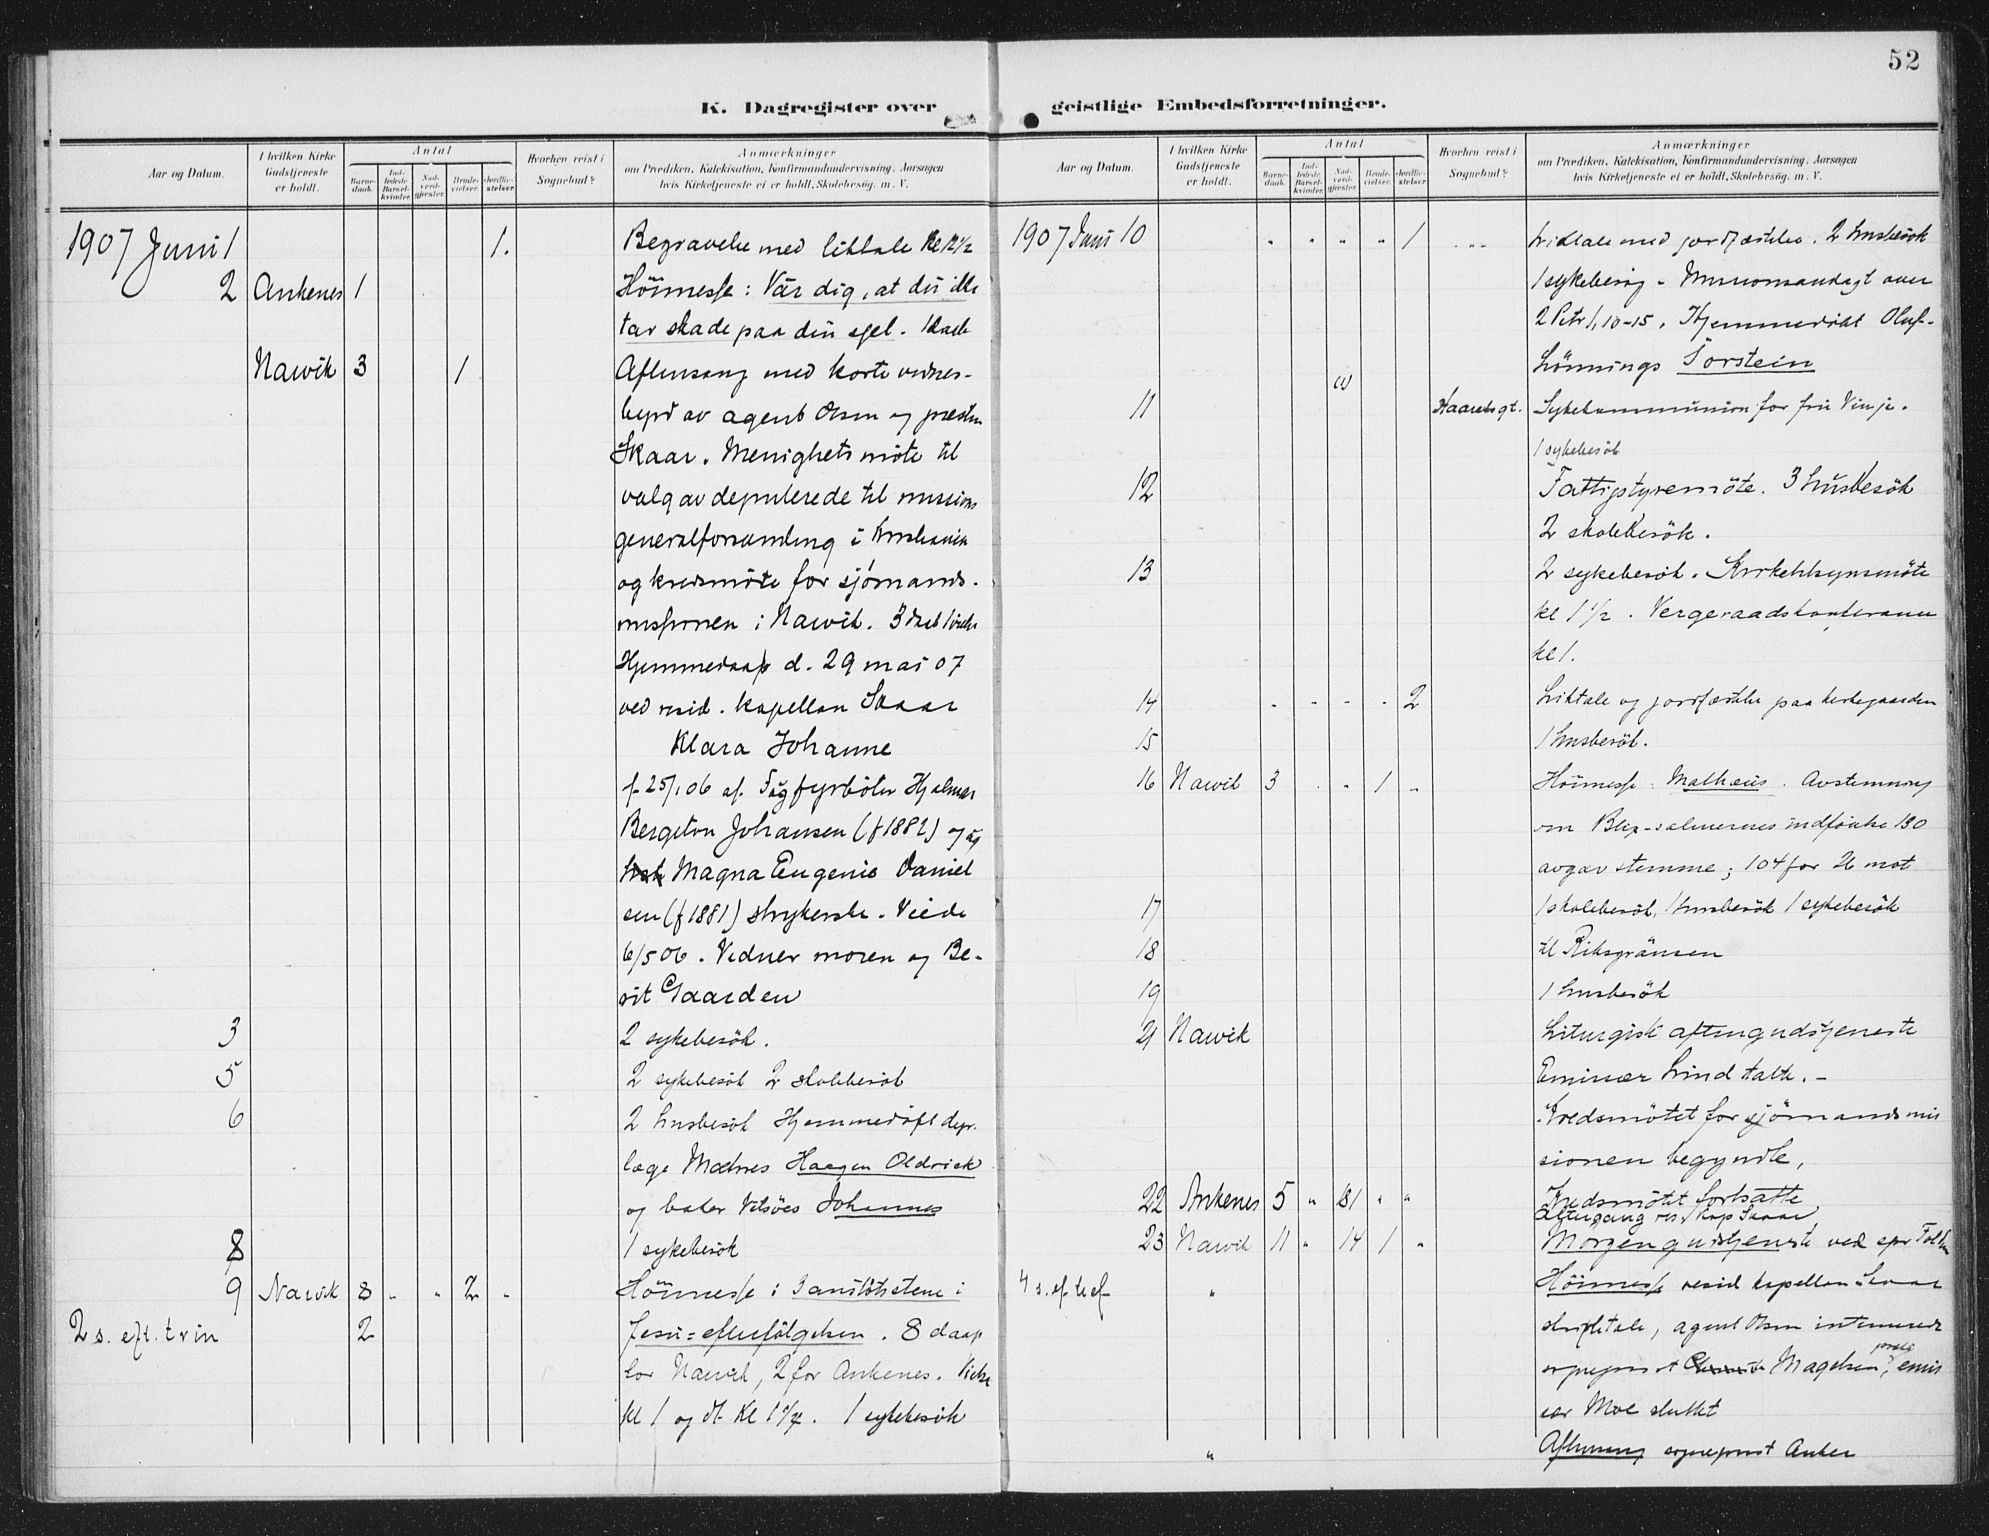 52
K. Dagregister over geistlige Embedsforretninger.
Aar og Datum.
I hvilken Kirke Gudstjeneste er holdt.
Antal
Barne-daab.
Ind-ledede Barsel-kvinder.
Nad-verd-gjæster.
Brude-vielser.
Jordfæ-stelser.
Hvorhen reist i Sognebud?
Anmærkninger
om Prædiken, Katekisation, Konfirmandundervisning. Aarsagen
hvis Kirketjeneste ei er holdt, Skolebesøg. m. V.
1907 Juni 1 1. Begravelse med liktale kl 12 1/2
2 Ankenes 1 Höimesse: Vär dig, at du ikke
tar skade paa din sjel.
Narvik 3 1 Aftensang med korte vidnes-
byrd av agent Olsen og presten
Skaar. Menighetsmöte til
valg av deputerede til missions
generalforsamling i Kristiania
og kredsmöte for sjömands-
missionen i Narvik. 3
Hjemmedaap d. 29 mai 07
ved resid. kapellan Skaar
Klara Johanne
f. 25/1 06 af. Hjalmar
Bergeton Johansen (f 1882) og
Magna Eugenie Daniel
sen (f 1881) strykerske. Viede
6/5 06. Vidner moren og Be-
rit Gaarden
3 2 sykebesök.
5 2 sykebesök 2 skolebesök
6 2 husbesök Hjemmedöpt
læge Haagen Oldrick
og Johannes
8 1 sykebesök
9 Narvik 8 " " 2 " Höimesse: Banstötstene i
2 s. eft. trin 2 Jesu=efterfölgelsen. 8 daap
for Narvik, 2 for Ankenes. Vielse
kl 1 og dt. kl 1 1/2. 1 sykebesök
Aar og Datum.
I hvilken Kirke Gudstjeneste er holdt.
Antal
Barne-daab.
Ind-ledede Barsel-kvinder.
Nad-verd-gjæster.
Brude-vielser.
Jordfæ-stelser.
Hvorhen reist i Sognebud?
Anmærkninger
om Prædiken, Katekisation, Konfirmandundervisning. Aarsagen
hvis Kirketjeneste ei er holdt, Skolebesøg. m. V.
1907 Juni 10 " " " " 1 " Liktale med jordfæstelse. 2 husbesök
1 sykebesög - Missionsandagt over
2 Petr 1, 10-15. Hjemmedöbt Oluf
Lönnings Torstein
11 Sykekommunion for fru Vinje.
1 sykebesök
12 Fattigstyremöte. 3 husbesök
2 skolebesök.
13 2 sykebesök. Kirketilsynsmöte
kl 1 1/2. Vergeraadskonferanse
kl 1.
14 " " " " 2 Liktale og jordfæstelse paa kirkegaarden
15 1 husbesök.
16 Narvik 3 " " 1 " Höimesse: Mathæus. Avstemning
om Blix-salmernes indförelse 130
avgav stemme; 104 for 26 mot
17 1 skolebesök, 1 husbesök 1 sykebesök
18 til Riksgränsen
19 1 husbesök
21 Narvik Liturgisk aftengudstjeneste
Emissær Lind talte. -
Kredsmötet for sjömandsmis
sionen begyndte,
22 Ankenes 5 " 181 " " Kredsmötet fortsatte
Altergang res. kap Skaar
23 Narvik 11 " 14 1 " Morgengudstjeneste ved
4 s. ef tref " Höimesse resid kapellan Skaar
skriftetale, agent Olsen
sogneprest Magelsen, emis
sær Moe sluttet
" Aftensang sogneprest Anker